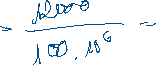 = 12000 / 100 · 10^6 =